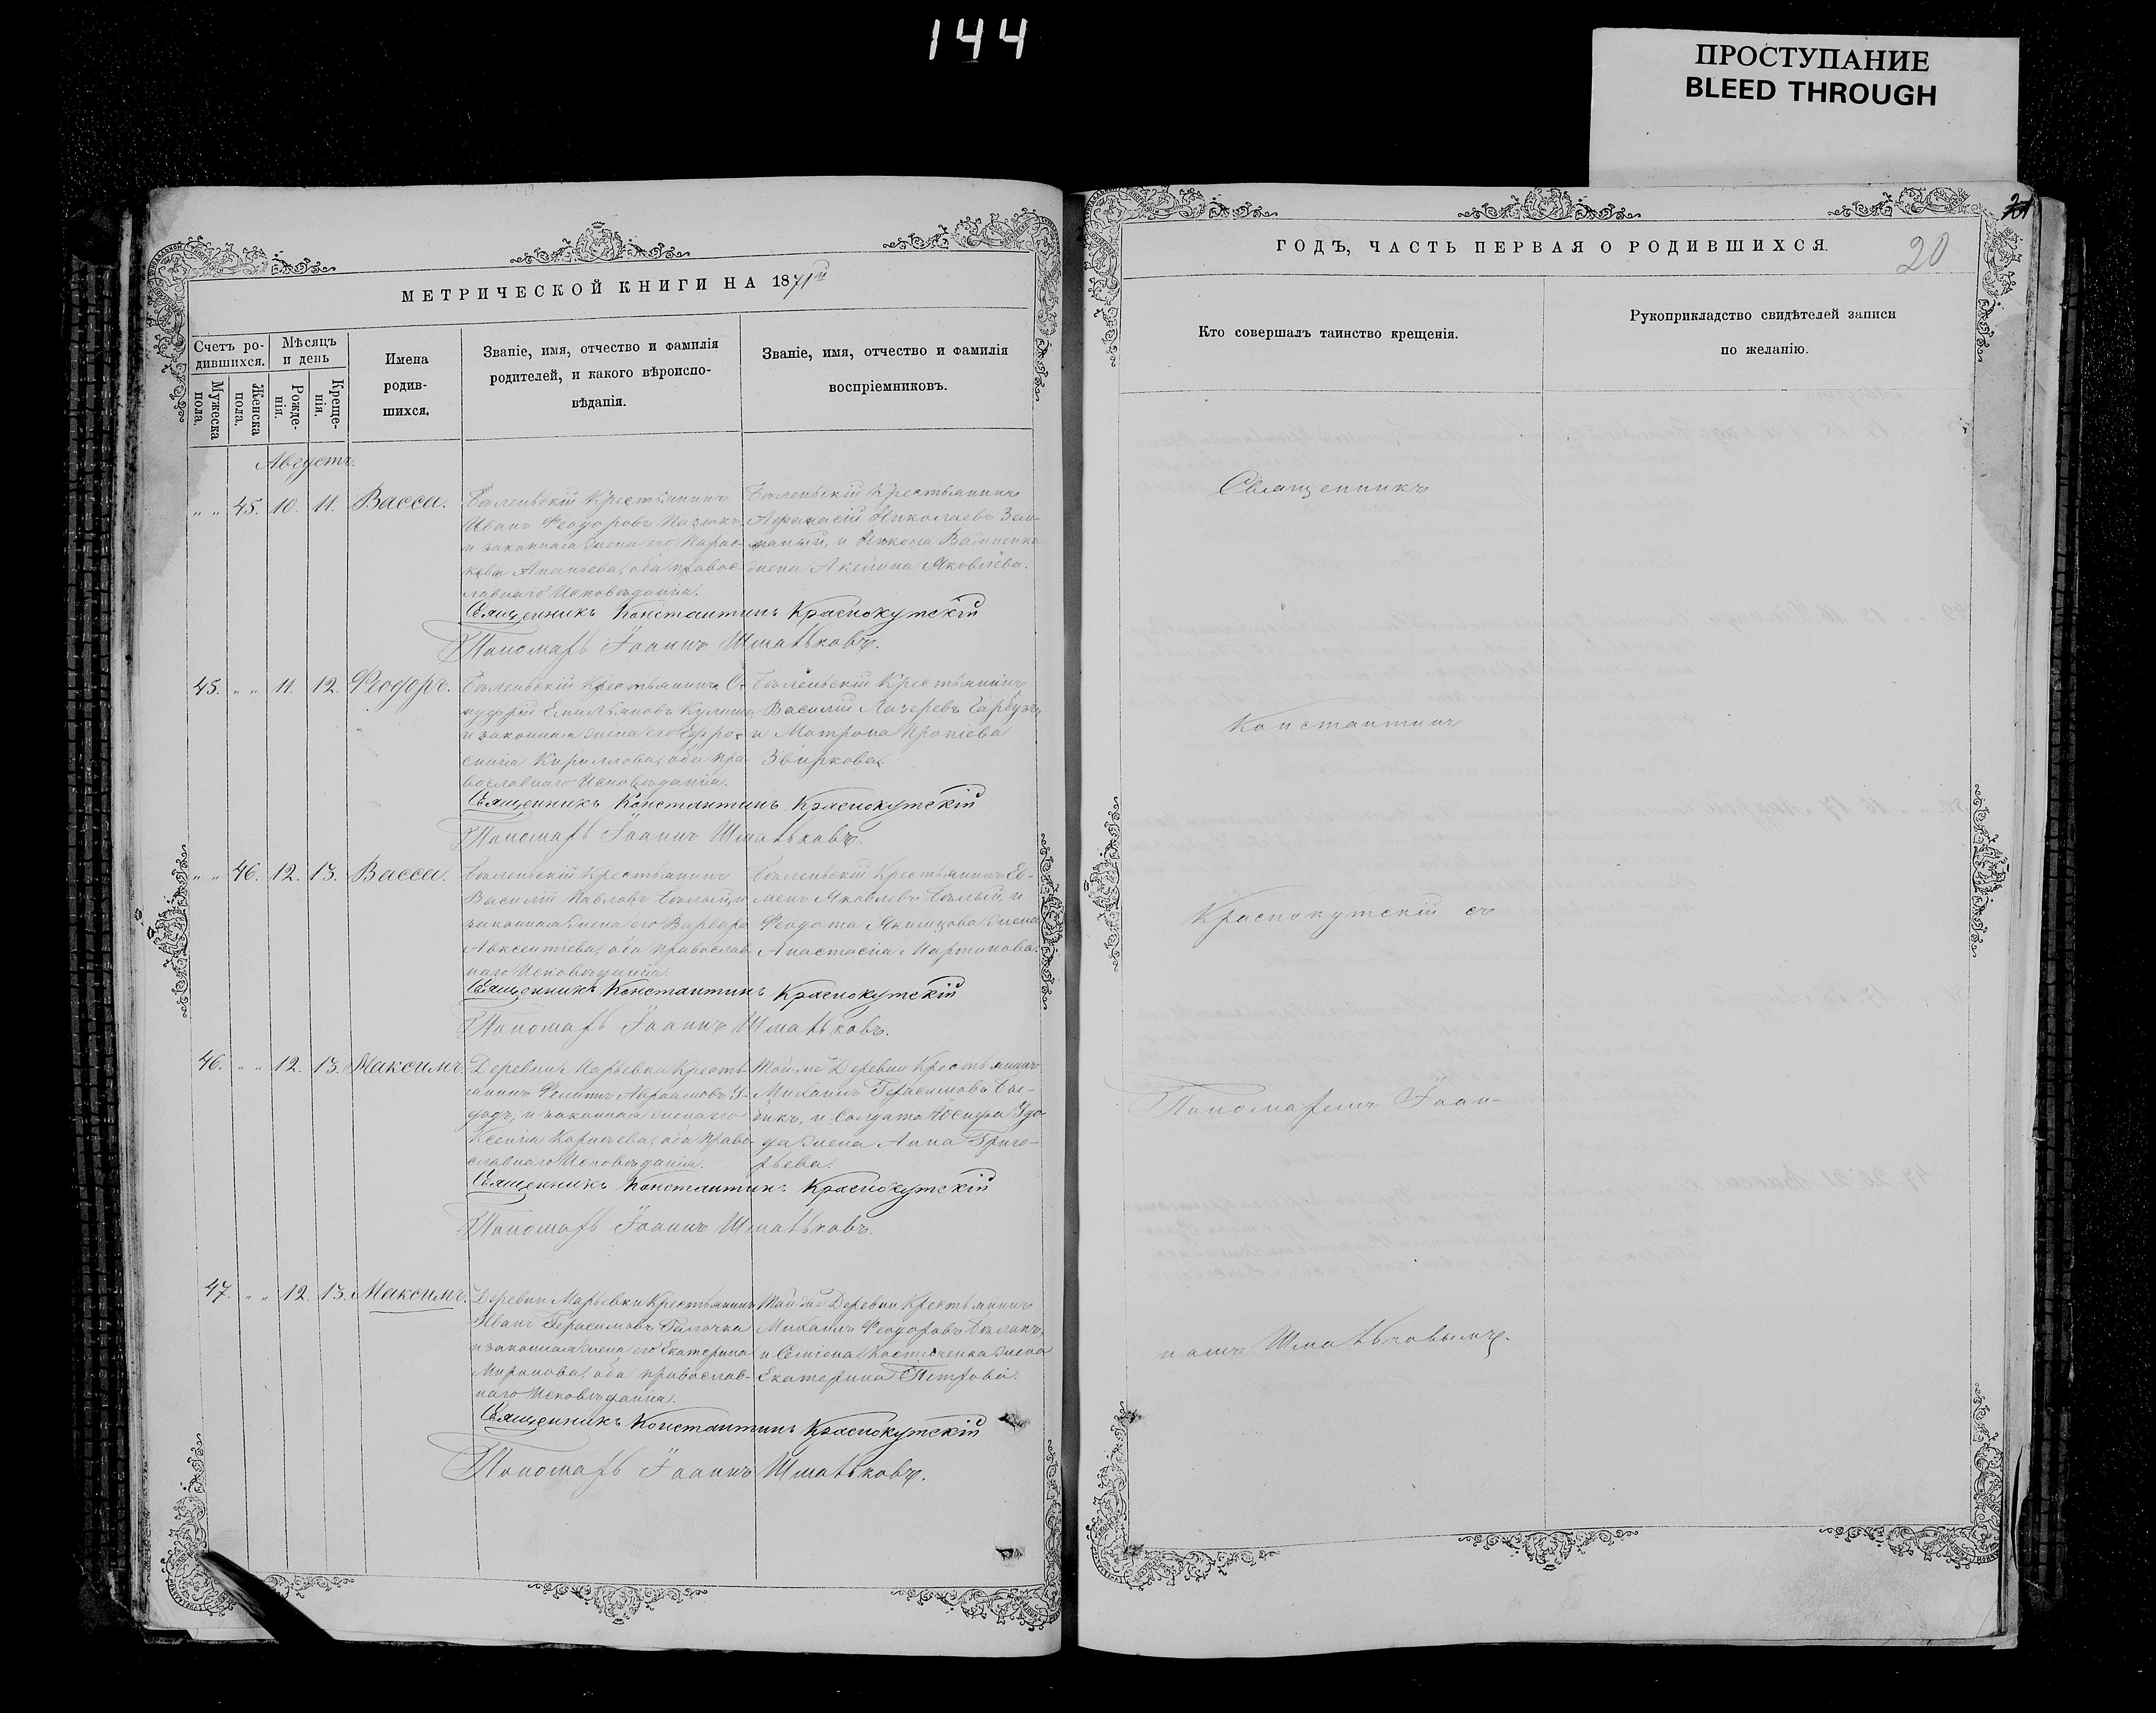 144
ПРОСТУПАНИЕ
BLEED THROUGH
МЕТРИЧЕСКОЙ КНИГИ НА 1871й
Счетъ ро-
дившихся.
Мѣсяцъ
и день
Мужеска
пола.
Женска
пола.
Рожде-
нія.
Креще-
нія.
Имена
родив-
шихся.
Званіе, имя, отчество и фамилія
родителей, и какого вѣроиспо-
вѣданія.
Званіе, имя, отчество и фамилія
воспріемниковъ.
Августъ.
„ „ 45. 10. 11. Васса.
Крестьянинъ
Иванъ Феодоровъ
и законная жена его Парас-
кева Ананьева, оба правос-
лавнаго Исповѣданія.
Крестьянинъ
Афанасій Николаевъ
жена Акелина Яковлева.
Священникъ Константинъ Краснокутскій
Пономарь Іоаннъ Шматьковъ.
45. „ „ 11. 12. Феодоръ.
Крестьянинъ О-
нуфрій Емильяновъ
и законная жена его Евфро-
синія Кириллова, оба пра-
вославнаго Исповѣданія.
Крестьянинъ
Василій Лазаревъ Гарбузъ,
и Матрона
Звиркова.
Священникъ Константинъ Краснокутскій
Пономарь Іоаннъ Шматьковъ.
„ „ 46. 12. 13. Васса.
Крестьянинъ
Василій Павловъ Бѣлый, и
законная жена его Варвара
Авксентіева, оба православ-
наго Исповѣданія.
Крестьянинъ Ев-
менъ Яковлевъ Бѣлый, и
Феодота жена
Анастасія Мартинова.
Священникъ Константинъ Краснокутскій
Пономарь Іоаннъ Шматьковъ.
46. „ „ 12. 13. Максимъ.
Деревни Марьевки Кресть-
янинъ Филипъ Авраамовъ У-
додъ, и законная жена его
Ксенія Корнѣева, оба право-
славнаго Исповѣданія.
Той же Деревни Крестьянинъ
Михаилъ Герасимовъ
и Солдата Іосифа Удо-
да жена Анна Григо-
рьева.
Священникъ Константинъ Краснокутскій
Пономарь Іоаннъ Шматьковъ.
47. „ „ 12. 13. Максимъ.
Деревни Марьевки Крестьянинъ
Иванъ Герасимовъ Галочка
и законная жена его Екатерина
Миронова, оба православ-
наго Исповѣданія.
Той же Деревни Крестьянинъ
Михаилъ Феодоровъ
и Семіона Костюченка жена
Екатерина Петрова.
Священникъ Константинъ Краснокутскій
Пономарь Іоаннъ Шматьковъ.
ГОДЪ, ЧАСТЬ ПЕРВАЯ О РОДИВШИХСЯ.
20
Кто совершалъ таинство крещенія.
Рукоприкладство свидѣтелей записи
по желанію.
Священникъ
Константинъ
Краснокутскій съ
Пономаремъ Іоан-
номъ Шматьковымъ.